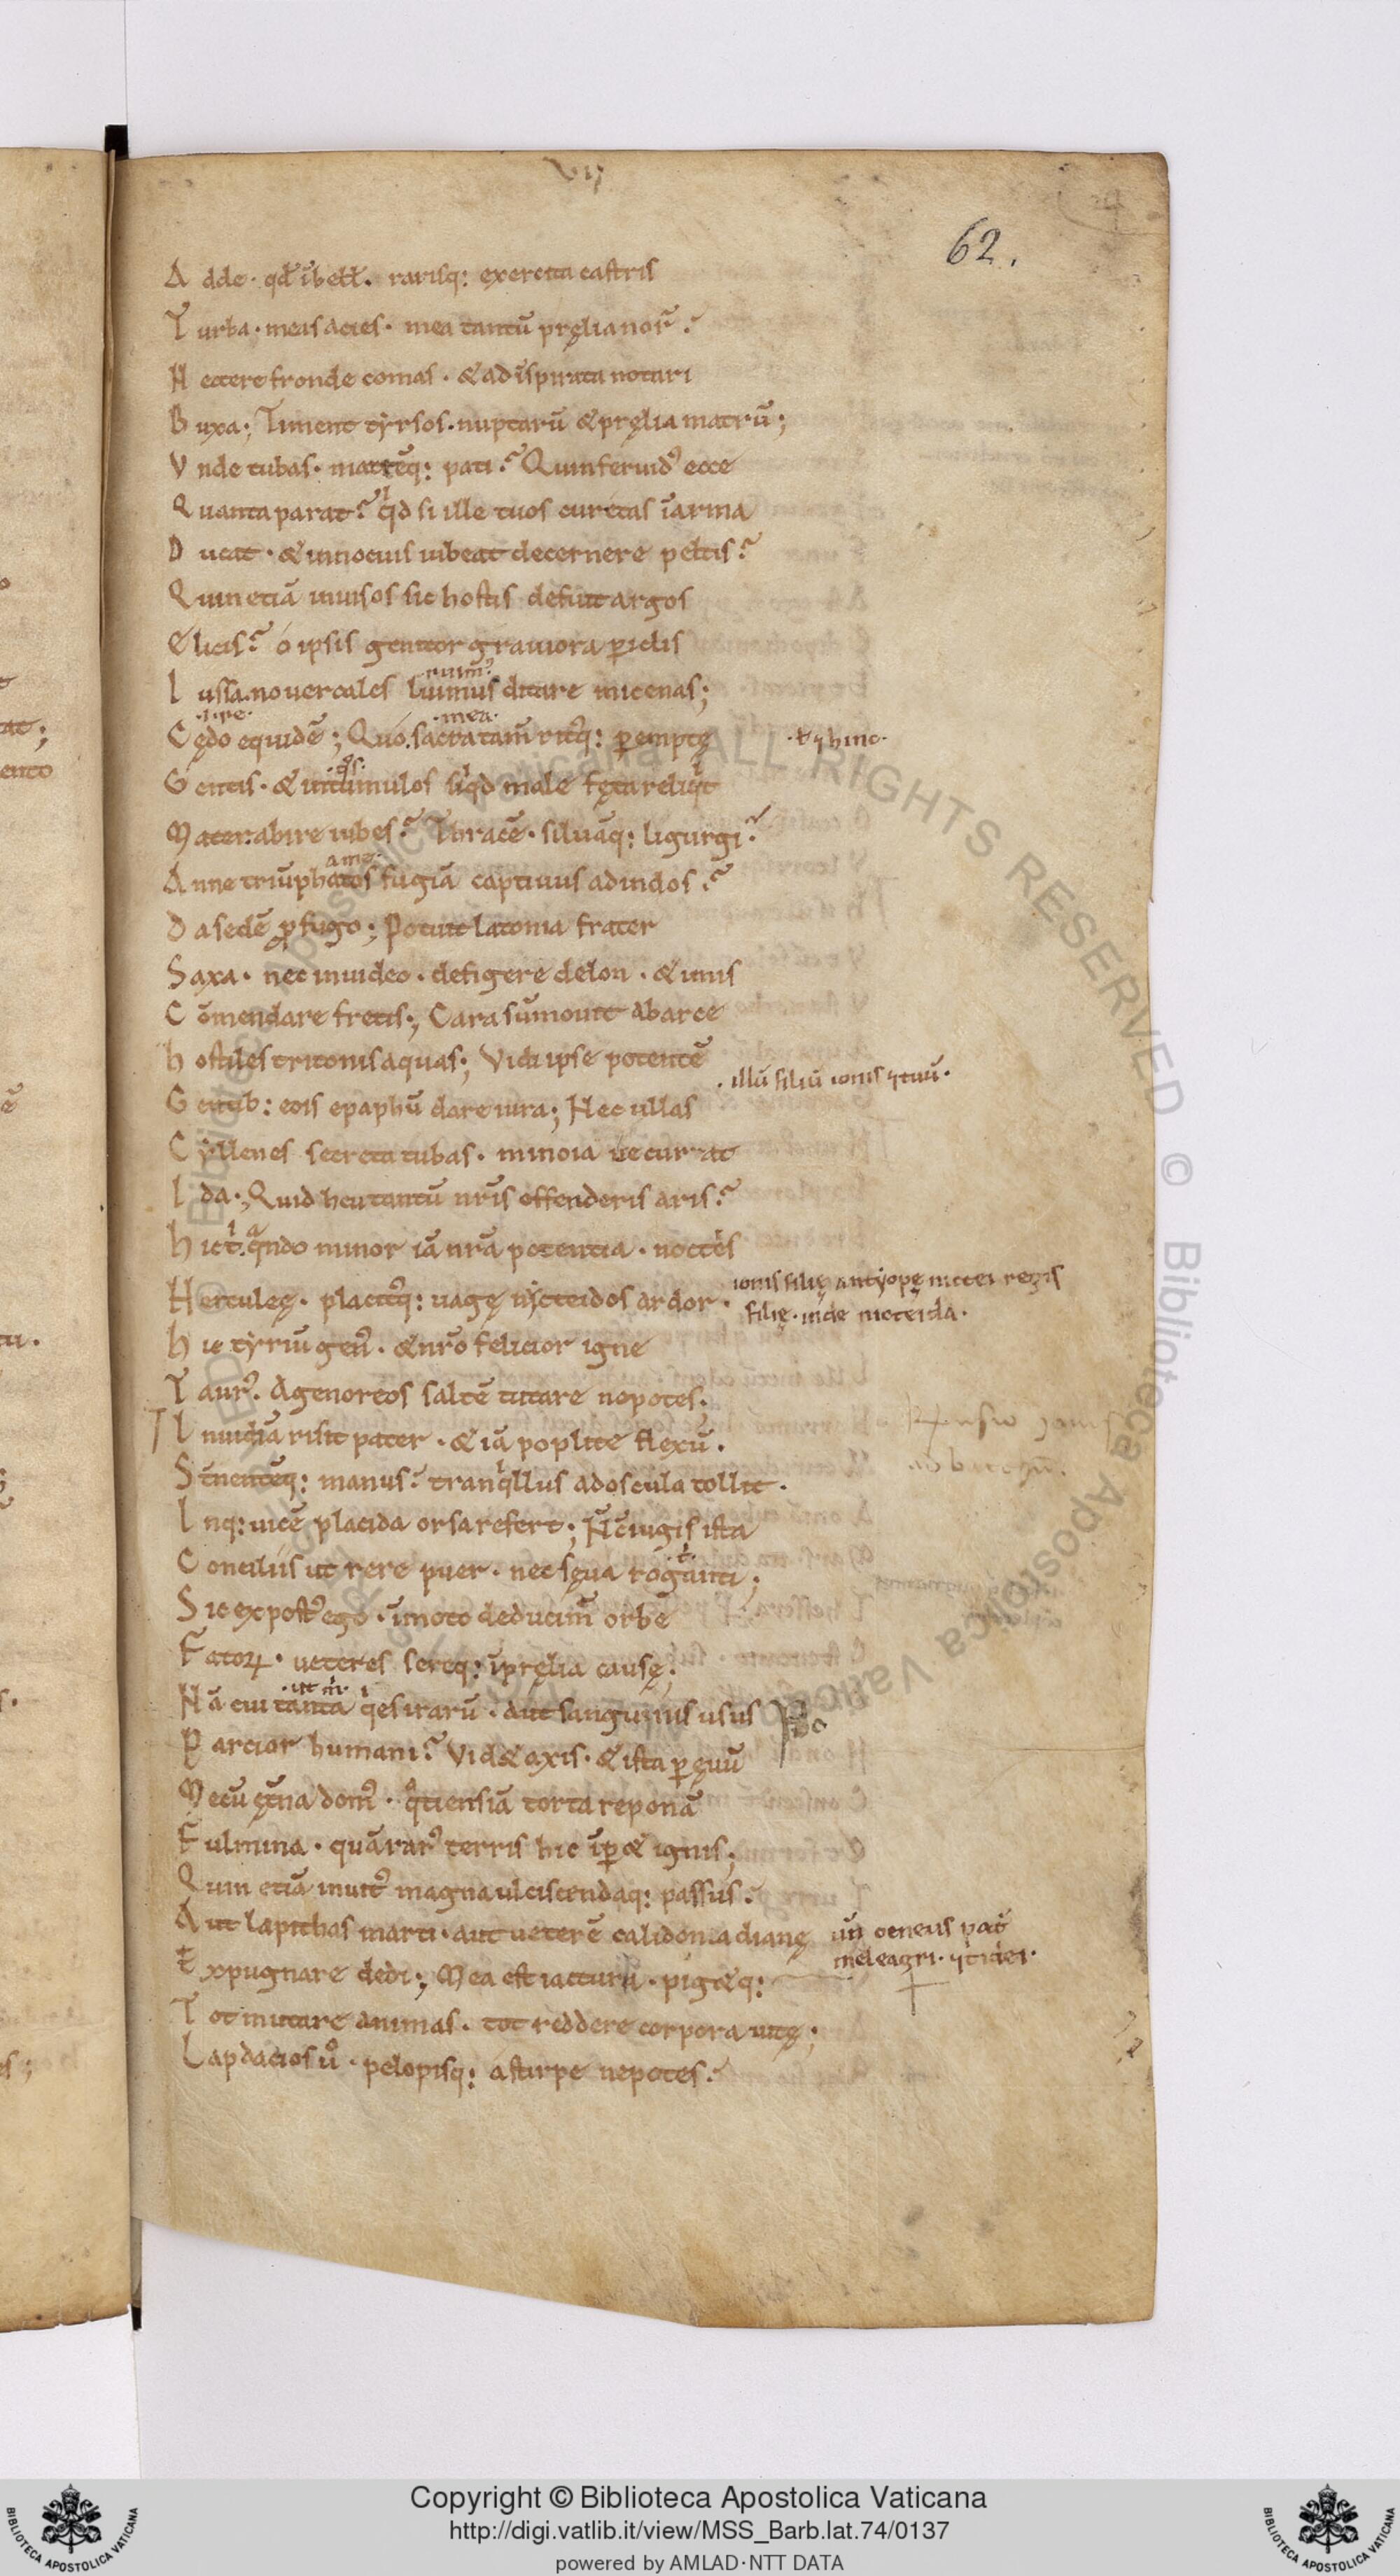 VIJ
62.
A dde · qđ ĩbell̃. rarisq: exercita castris
T urba · meis acies · mea tantũ pręlia nor̃?
N ectere fronde comas · & ad ĩspirata notari
B uxa; Timent tyrsos · nuptarũ & pręlia matrũ;
V nde tubas · martẽq: pati? Quin feruidꝰ ecce
Q uanta parat? qͥd si ille tuos curetas ĩ arma
D ucat · & innocuis iubeat decernere peltis?
Q uin etiã inuisos sic hostis defuit argos
E licis? o ipsis genitor grauiora ꝑiclis
I ussa. nouercales luimus ditare micenas;
.ire.
.mea.
C ędo equidẽ; Quo. sacratãm ritꝰq: ꝑemptę
G entis · & intumulos siqͥd male fęta reliqͥt
M ater. abire iubes? Thracẽ · siluãq: ligurgi?
ame·
A nne triũphatos fugiã captiuus adindos?
D a sedẽ ꝓfugo; Potuit latonia frater
S axa · nec inuideo · defigere delon · & imis
C õmendare fretis; Cara sũmouit abarce
h ostiles tritonis aquas; Vidi ipse potentẽ
· illũ filiũ iouis
G entib: eois epaphũ dare iura; Nec ullas
C yllenes secreta tubas · minoia ue currat
I da ·; Quid heu tantũ nr̃is offenderis aris?
h ic t. qᵃndo minor iã nr̃a potentia · noctes
H erculeę · placitꝰq: uagę nycteidos ardor ·
iouis filię antyopę nictei regis
filię · inde nicteida ·
h ic tyriũ genꝰ · & nr̃o felicior igne
T aurꝰ. Agenoreos saltẽ tutare nepotes;
I nuidiã risit pater · & iã poplite flexũ ·
S t̃nentẽq: manus? tranqͥllus ad oscula tollit ·
I nq: uicẽ placida orsa refert; Nc̃iugis ista
C onciliis ut rere puer · nec sęua rogãnti;
S ic expostꝰ ego · ĩmoto deducim̃ orbẽ
F atoꝝ · ueteres sereq: ĩ pręlia causę;
N ã cui tanta qͥes iraꝛũ · aut sanguinis usus
P arcior humani? Vid& axis · & ista ꝑ ęuũ
M ecũ ęt̃na domꝰ · qͦtiens iã torta reponã
F ulmina · quã rarꝰ terris hic ĩꝑ& ignis;
Q uin etiã inuitꝰ magna ulciscendaq: passus?
A ut lapithas marti · aut ueterẽ calidonia dianę
uñ oeneus pat̃
meleagri ·
E xpugnare dedi; Mea est iactura · pig&q:
T ot mutare animas · tot reddere corpora uitę;
L apdacios uͦ · pelopisq: a stirpe nepotes?
ALL RIGHTS RESERVED © Biblioteca Apostolica Vaticana
Copyright © Biblioteca Apostolica Vaticana
http://digi.vatlib.it/view/MSS_Barb.lat.74/0137
powered by AMLAD·NTT DATA
BIBLIOTECA APOSTOLICA VATICANA
BIBLIOTECA APOSTOLICA VATICANA